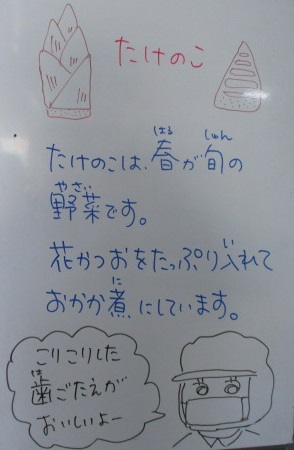 たけのこ
たけのこは、春(はる)が旬(しゅん)の
野菜(やさい)です。
花かつおをたっぷり入(い)れて
おかか煮(に)にしています。
こりこりした
歯(は)ごたえが
おいしいよー